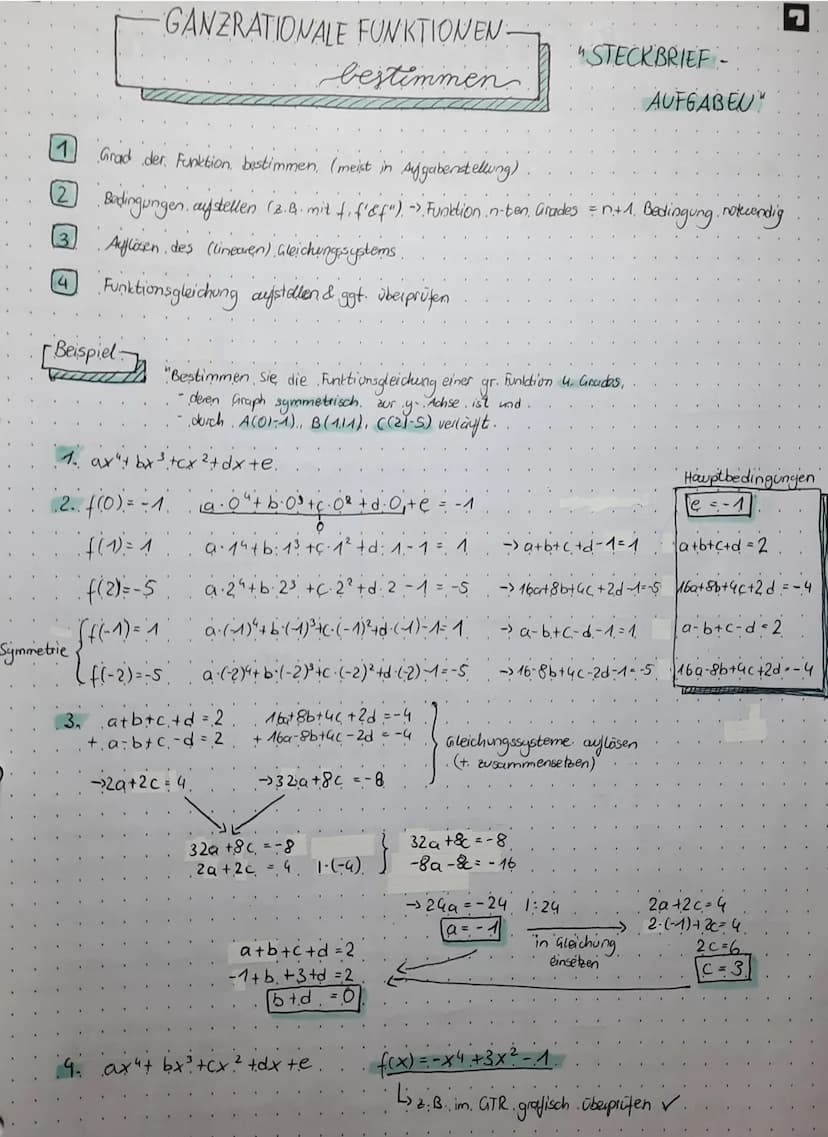 GANZRATIONALE FUNKTIONEN
bestimmen
"STECKBRIEF-
AUFGABEN"
1 Grad der Funktion bestimmen (meist in Aufgabenstellung)
2 Bedingungen aufstellen (z.B. mit f, f' & f'') -> Funktion n-ten Grades = n+1 Bedingung notwendig
3 Auflösen des (linearen) Gleichungssystems
4 Funktionsgleichung aufstellen & ggf. überprüfen
Beispiel
"Bestimmen Sie die Funktionsgleichung einer gr. Funktion 4. Grades,
- deren Graph symmetrisch zur y-Achse ist und
- durch A(0|-1), B(1|1), C(2|-5) verläuft.
1. ax⁴+bx³+cx²+dx+e
Hauptbedingungen
2. f(0)=-1 a·0⁴+b·0³+c·0²+d·0+e=-1 e=-1
0
f(1)=1 a·1⁴+b·1³+c·1²+d·1-1=1 ->a+b+c+d-1=1 a+b+c+d=2
f(2)=-5 a·2⁴+b·2³+c·2²+d·2-1=-5 ->16a+8b+4c+2d-1=-5 16a+8b+4c+2d=-4
Symmetrie
f(-1)=1 a·(-1)⁴+b·(-1)³+c·(-1)²+d·(-1)-1=1 ->a-b+c-d-1=1 a-b+c-d=2
f(-2)=-5 a·(-2)⁴+b·(-2)³+c·(-2)²+d·(-2)-1=-5 ->16-8b+4c-2d-1=-5 16a-8b+4c+2d=-4
3. a+b+c+d=2 16a+8b+4c+2d=-4
+ a-b+c-d=2 + 16a-8b+4c-2d=-4
Gleichungssysteme auflösen
(+ zusammensetzen)
->2a+2c=4 ->32a+8c=-8
32a+8c=-8 32a+8c=-8
2a+2c=4 |·(-4) -8a-8c=-16
->24a=-24 |:24 2a+2c=4
a=-1 2·(-1)+2c=4
in Gleichung
einsetzen
2c=6
c=3
a+b+c+d=2
-1+b+3+d=2
b+d=0
4. ax⁴+bx³+cx²+dx+e f(x)=-x⁴+3x²-1
z.B. im GTR grafisch überprüfen ✓